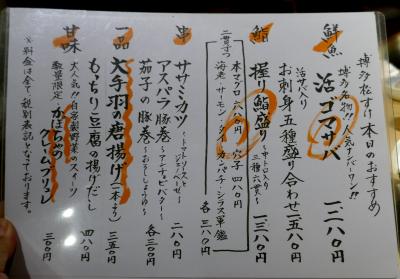 博多松すけ 本日のおすすめ
鮮魚
博多名物!!人気ナンバーワン!!
活ゴマサバ 一二八〇
活サバ入り
お刺身五種盛り合わせ 一五八〇
鮨
握り鮨盛り 三種六貫 一三八〇
二貫ずつ
本マグロ 六八〇 穴子 四八〇
海老・サーモン・タイ・カンパチ・シラス軍艦 各三八〇
串
ササミカツ 〜トマトソースとジェノベーゼ〜 二八〇
アスパラ豚巻 〜アンチョビバター〜
茄子の豚巻 〜おろししょうゆ〜 各三三〇
一品
大手羽の唐揚げ(一本より) 三五〇
もっちり豆腐の揚げだし 四八〇
甘味
大人気!!自家製野菜のスイーツ
数量限定 かぼちゃのクレームブリュレ 三〇〇
※料金は全て税別表記となっております。